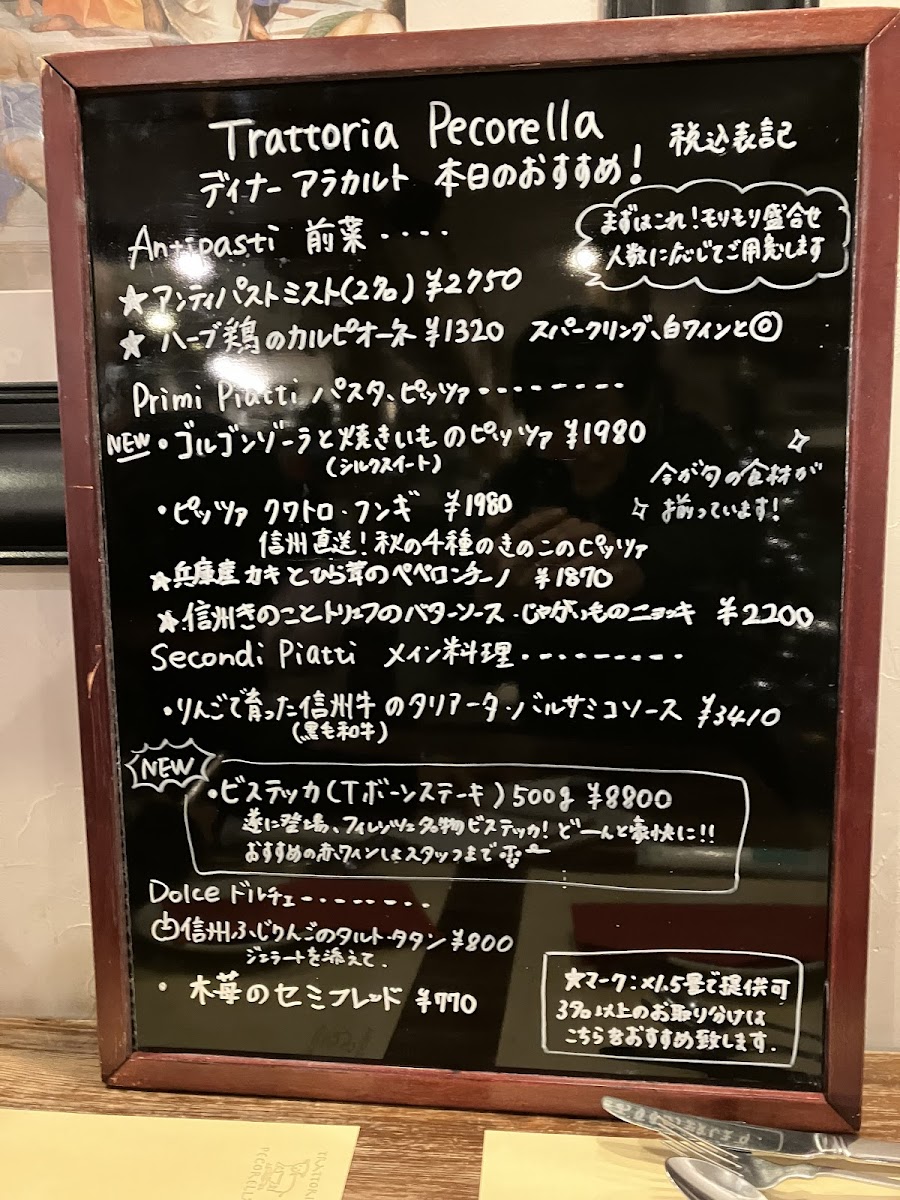 Trattoria Pecorella
税込表記
ディナー アラカルト 本日のおすすめ!
Antipasti 前菜 ‥‥
まずはこれ!モリモリ盛合せ
人数に応じてご用意します
★アンティパストミスト(2名) ¥2750
★ハーブ鶏のカルピオーネ ¥1320 スパークリング、白ワインと◎
Primi Piatti パスタ、ピッツァ ---------
NEW ・ゴルゴンゾーラと焼きいものピッツァ ¥1980
(シルクスイート)
今が旬の食材が
揃っています!
・ピッツァ クワトロ・フンギ ¥1980
信州直送!秋の4種のきのこのピッツァ
★兵庫産カキとひら茸のペペロンチーノ ¥1870
★信州きのことトリュフのバターソース・じゃがいものニョッキ ¥2200
Secondi Piatti メイン料理 ---------
・りんごで育った信州牛のタリアータ・バルサミコソース ¥3410
(黒毛和牛)
NEW
・ビステッカ(Tボーンステーキ)500g ¥8800
遂に登場、フィレンツェ名物ビステッカ!どーんと豪快に!!
おすすめの赤ワインはスタッフまで
Dolce ドルチェ --------
信州ふじりんごのタルト・タタン ¥800
ジェラートを添えて.
・木苺のセミフレッド ¥770
★マーク:×1.5量で提供可
3名以上のお取り分けは
こちらをおすすめ致します.
TRATTORIA
PECORELLA